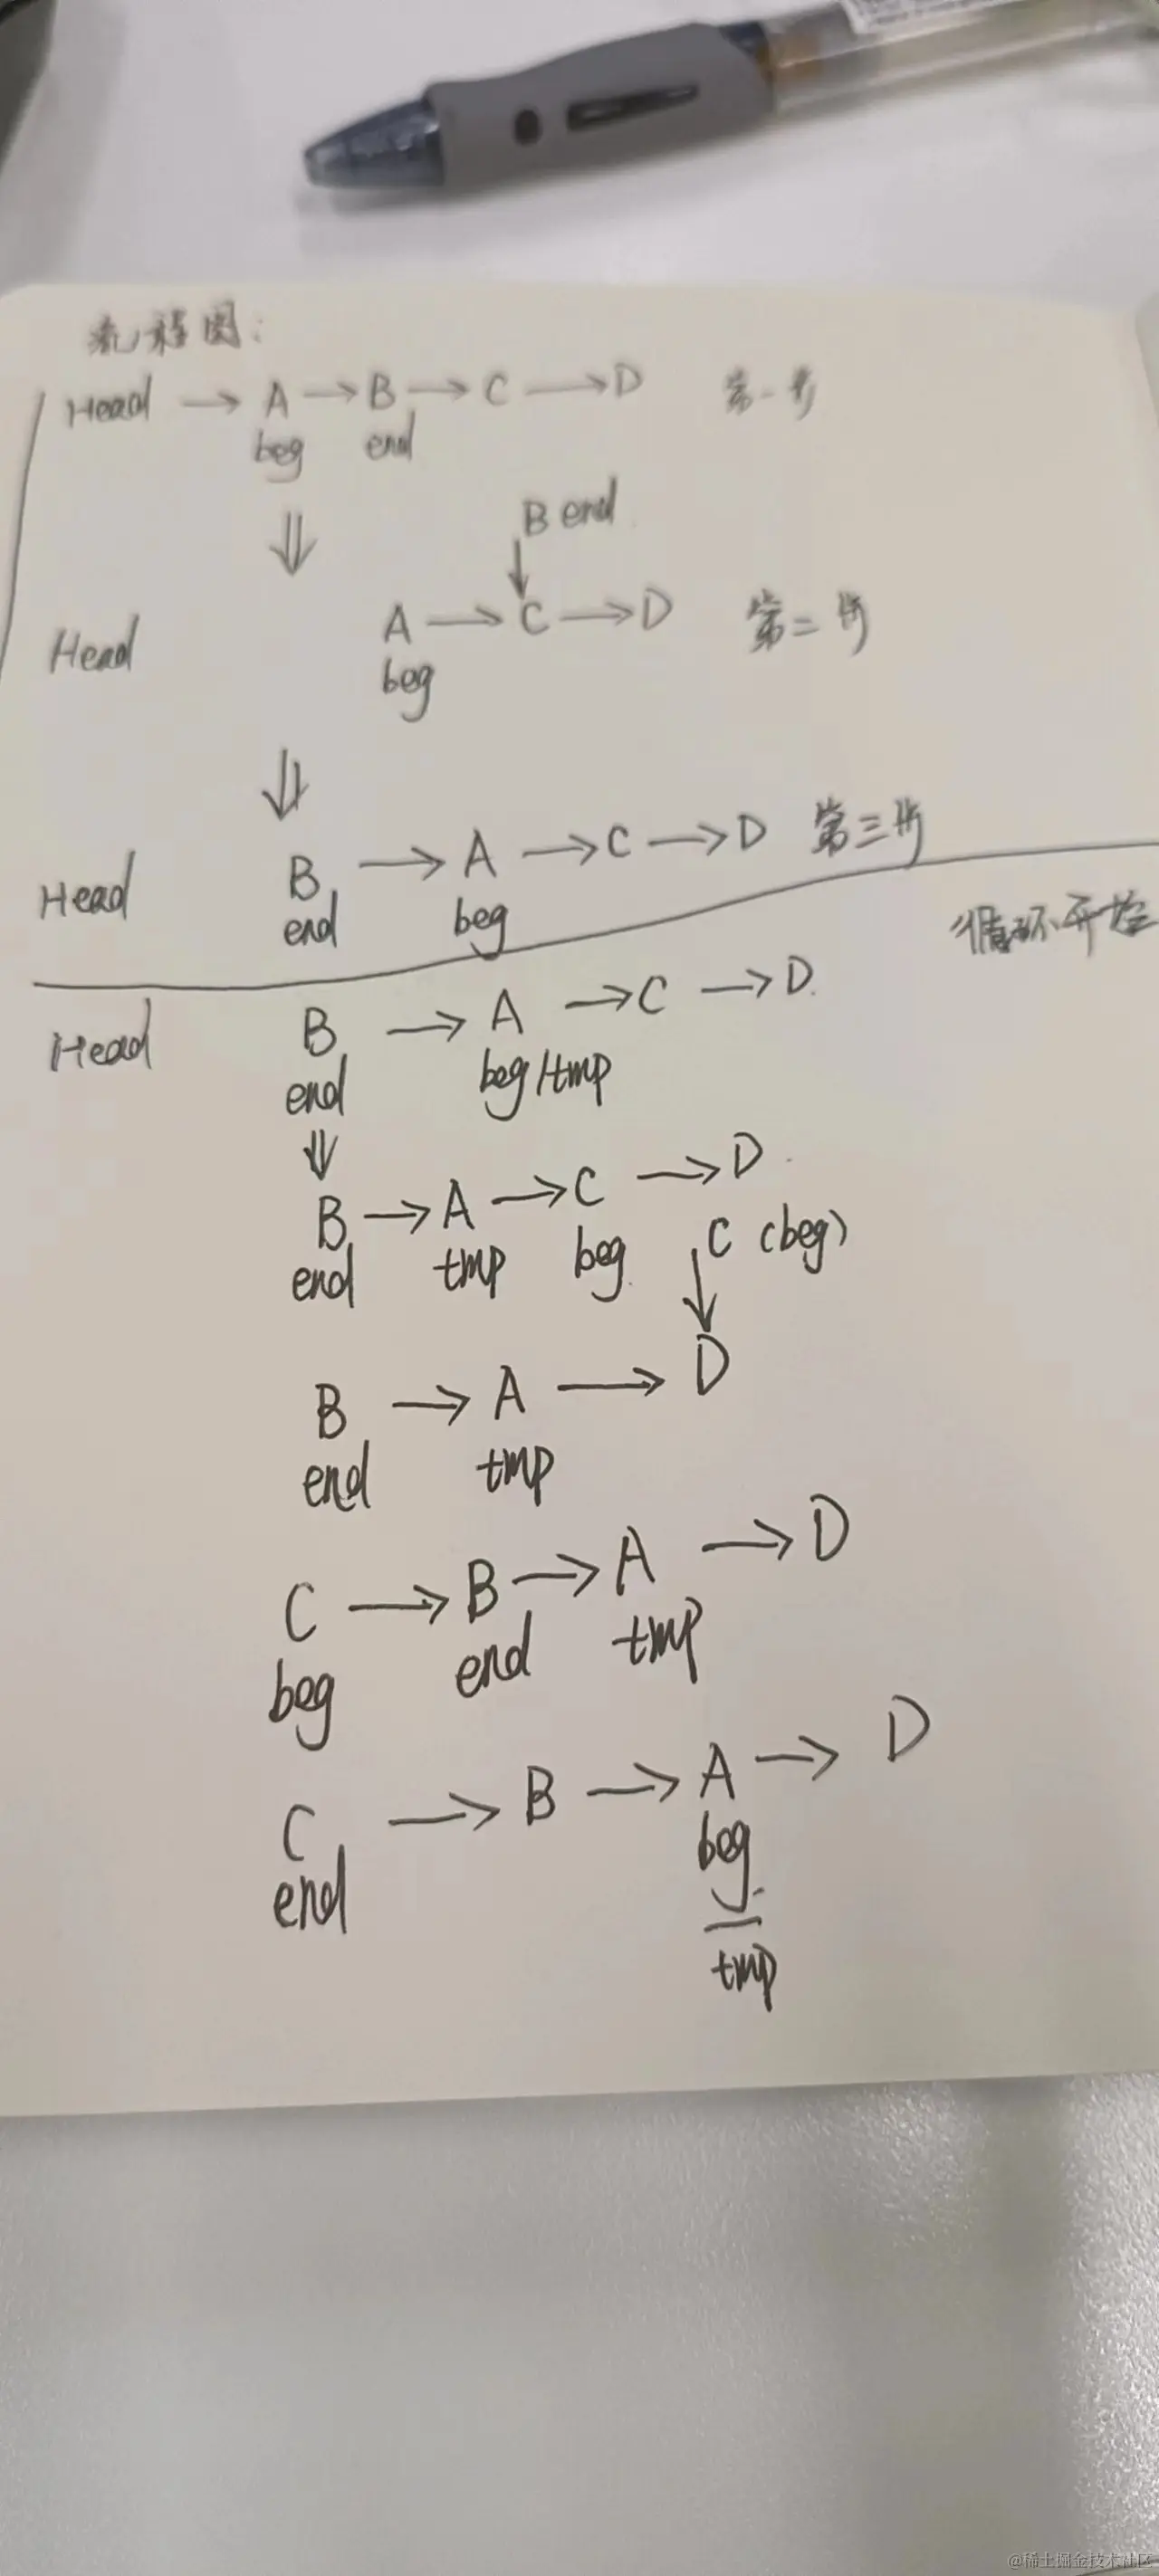 流程图:
Head → A → B → C → D 第一步
beg end
B end
↓
Head A → C → D 第二步
beg
Head B → A → C → D 第三步
end beg
循环开始
Head B → A → C → D
end beg/tmp
B → A → C → D
end tmp beg C (beg)
B → A → D
end tmp
C → B → A → D
beg end tmp
C → B → A → D
end beg
tmp
@稀土掘金技术社区